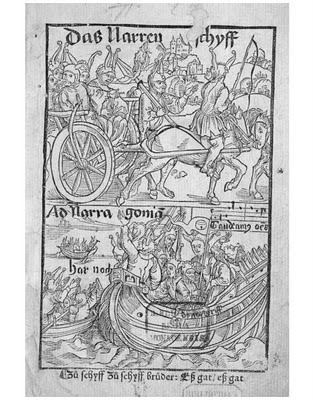 Das Narren schyff
Ad Narra goniã
Gaudeamꝰ oẽs
har noch
Zů schyff Zů schyff brůder: Eß gat / eß gat